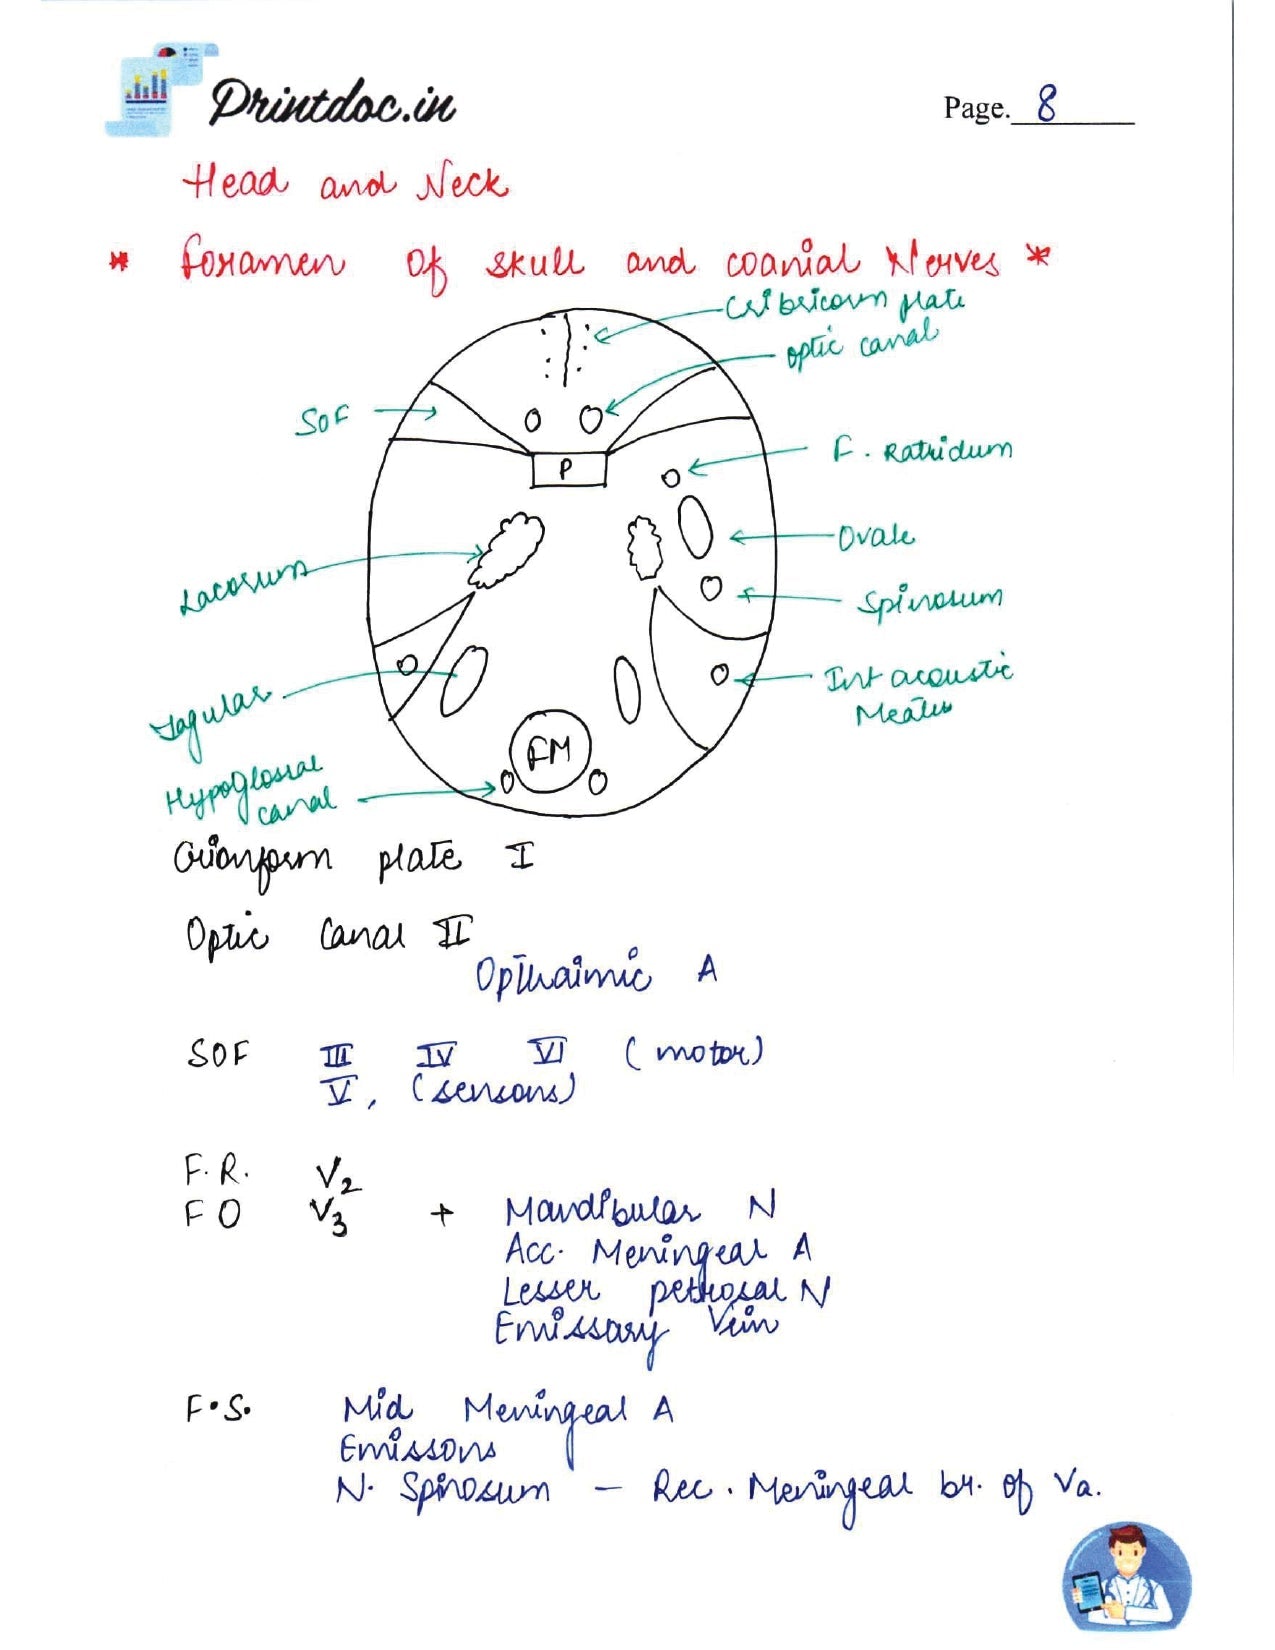 Printdoc.in
Page. 8
Head and Neck
* Foramen Of skull and coanial Nerves *
Cribricorm plate
optic canal
SOF
F. Ratridum
P
Ovale
Lacosum
Spinosum
Int acoustic
Meatus
Jagular
FM
Hypoglossal
canal
plate I
Optic Canal II
Opthaimic A
SOF III IV VI (motor)
V, (sensons)
F.R. V2
FO V3 + Mandibular N
Acc. Meningeal A
Lesser petrosal N
Emissary Vein
F.S. Mid Meningeal A
Emissons
N. Spinosum - Rec. Meningeal br. of Va.